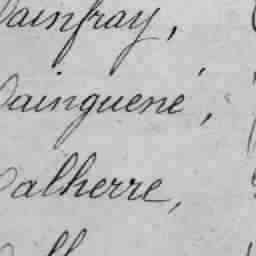 Dainfray,
Dainguené,
Dalherre,